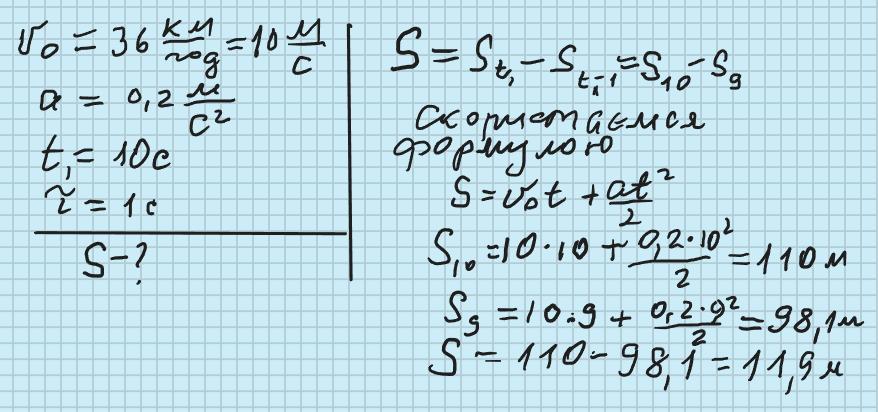 v₀ = 36 км/год = 10 м/с
a = 0,2 м/с²
t₁ = 10с
τ̃ = 1с
S-?
S = S_t₁ - S_t₁-1 = S₁₀ - S₉
Скористаємося
формулою
S = v₀t + at²/2
S₁₀ = 10·10 + 0,2·10²/2 = 110м
S₉ = 10·9 + 0,2·9²/2 = 98,1м
S = 110 - 98,1 = 11,9м